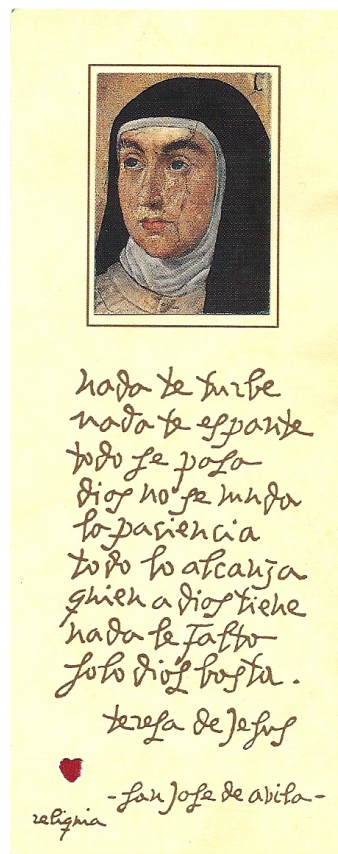 nada te turbe
nada te espante
todo se pasa
dios no se muda
la paciencia
todo lo alcanza
quien a dios tiene
nada le falta
solo dios basta.
teresa de Jesus
-san Jose de avila-
reliquia